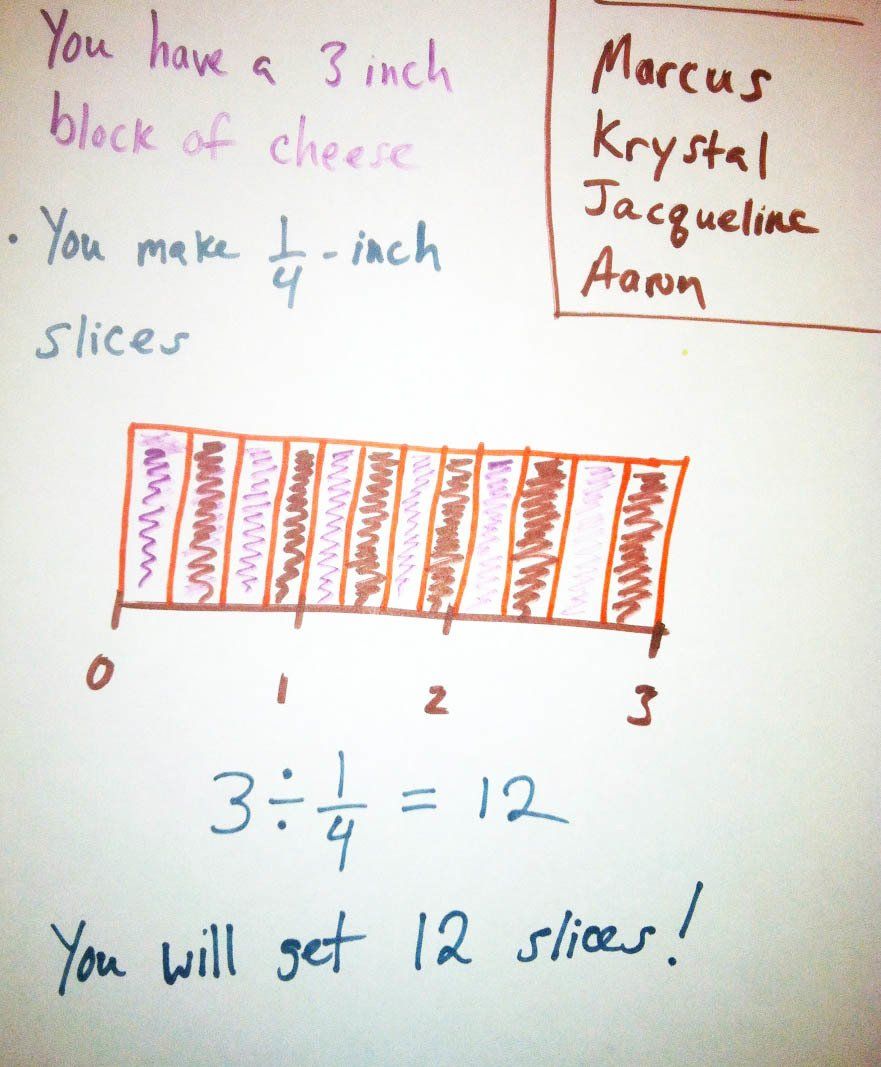 You have a 3 inch
block of cheese
• You make 1/4 - inch
slices
Marcus
Krystal
Jacqueline
Aaron
0 1 2 3
3 ÷ 1/4 = 12
You will get 12 slices!